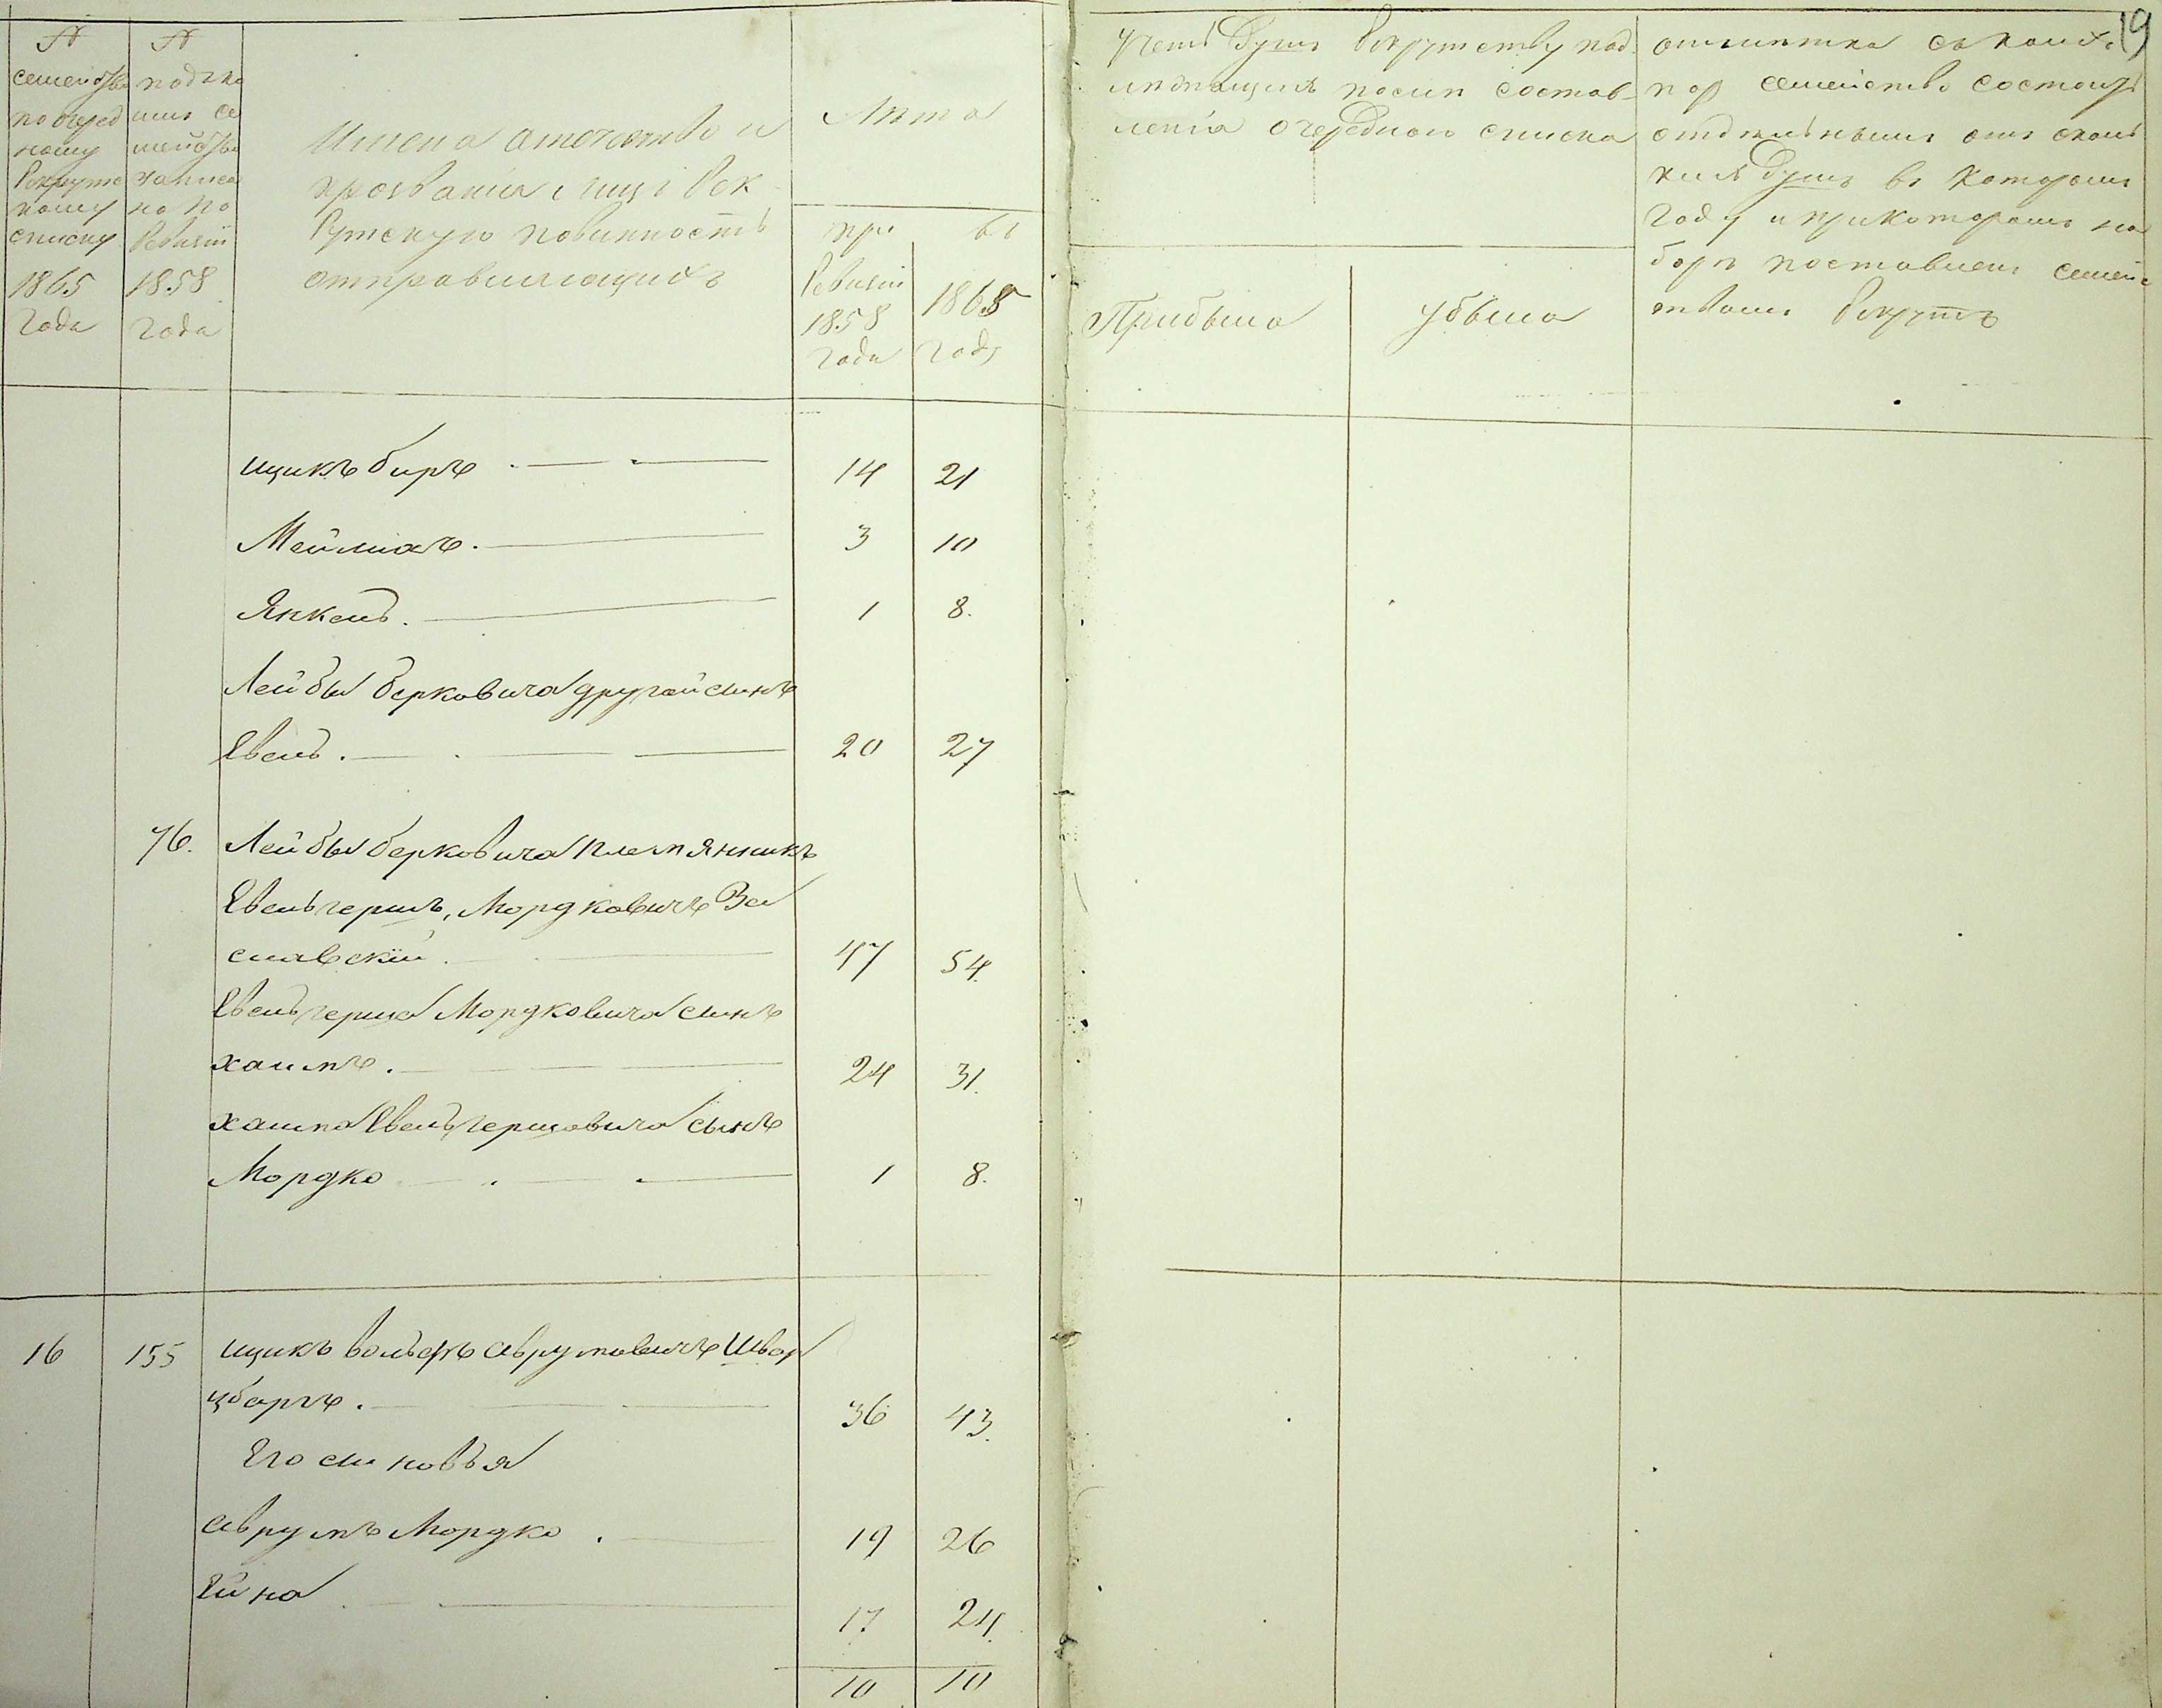 19
№
семейства
по очеред
ному
Рекрутс
кому
списку
1865
года
№
подъ ко
имъ се
мейства
записа
но по
Ревизіи
1858
года
Имена отечество и
прозванія лицъ Рек
рутскую повинность
отправляющихъ
Лѣта
при
Ревизіи
1858
года
въ
1865
году
Учетъ душъ Рекрутству под
лежащихъ послѣ состав
ленія очереднаго списка
Прибыло
убыло
отмѣтка съ коихъ
пор семейство состоитъ
отдѣльнымъ
душъ въ которомъ
году и при которомъ на
борѣ поставленъ семейс
твомъ Рекрутъ
ицикъ биръ . — . — 14 21
Мейлихъ . — 3 10
Янкель . — 1 8.
Лейбы берковича другой синъ
Евель . — . — — 20 27
76. Лейбы берковича племянникъ
Евель герщъ Мордковичъ За
славскій . — 47 54.
Евель герща Мордковича синъ
хаимъ . — — — 24 31.
хаима Евель герщовича сынъ
Мордко — . — . — 1 8.
16 155 ицикъ вольфъ аврумовичъ Швар
цбаргъ . — — — 36 43.
Его синовья
аврумъ Мордко . — 19 26
Ейна . — — 17. 24.
10 10